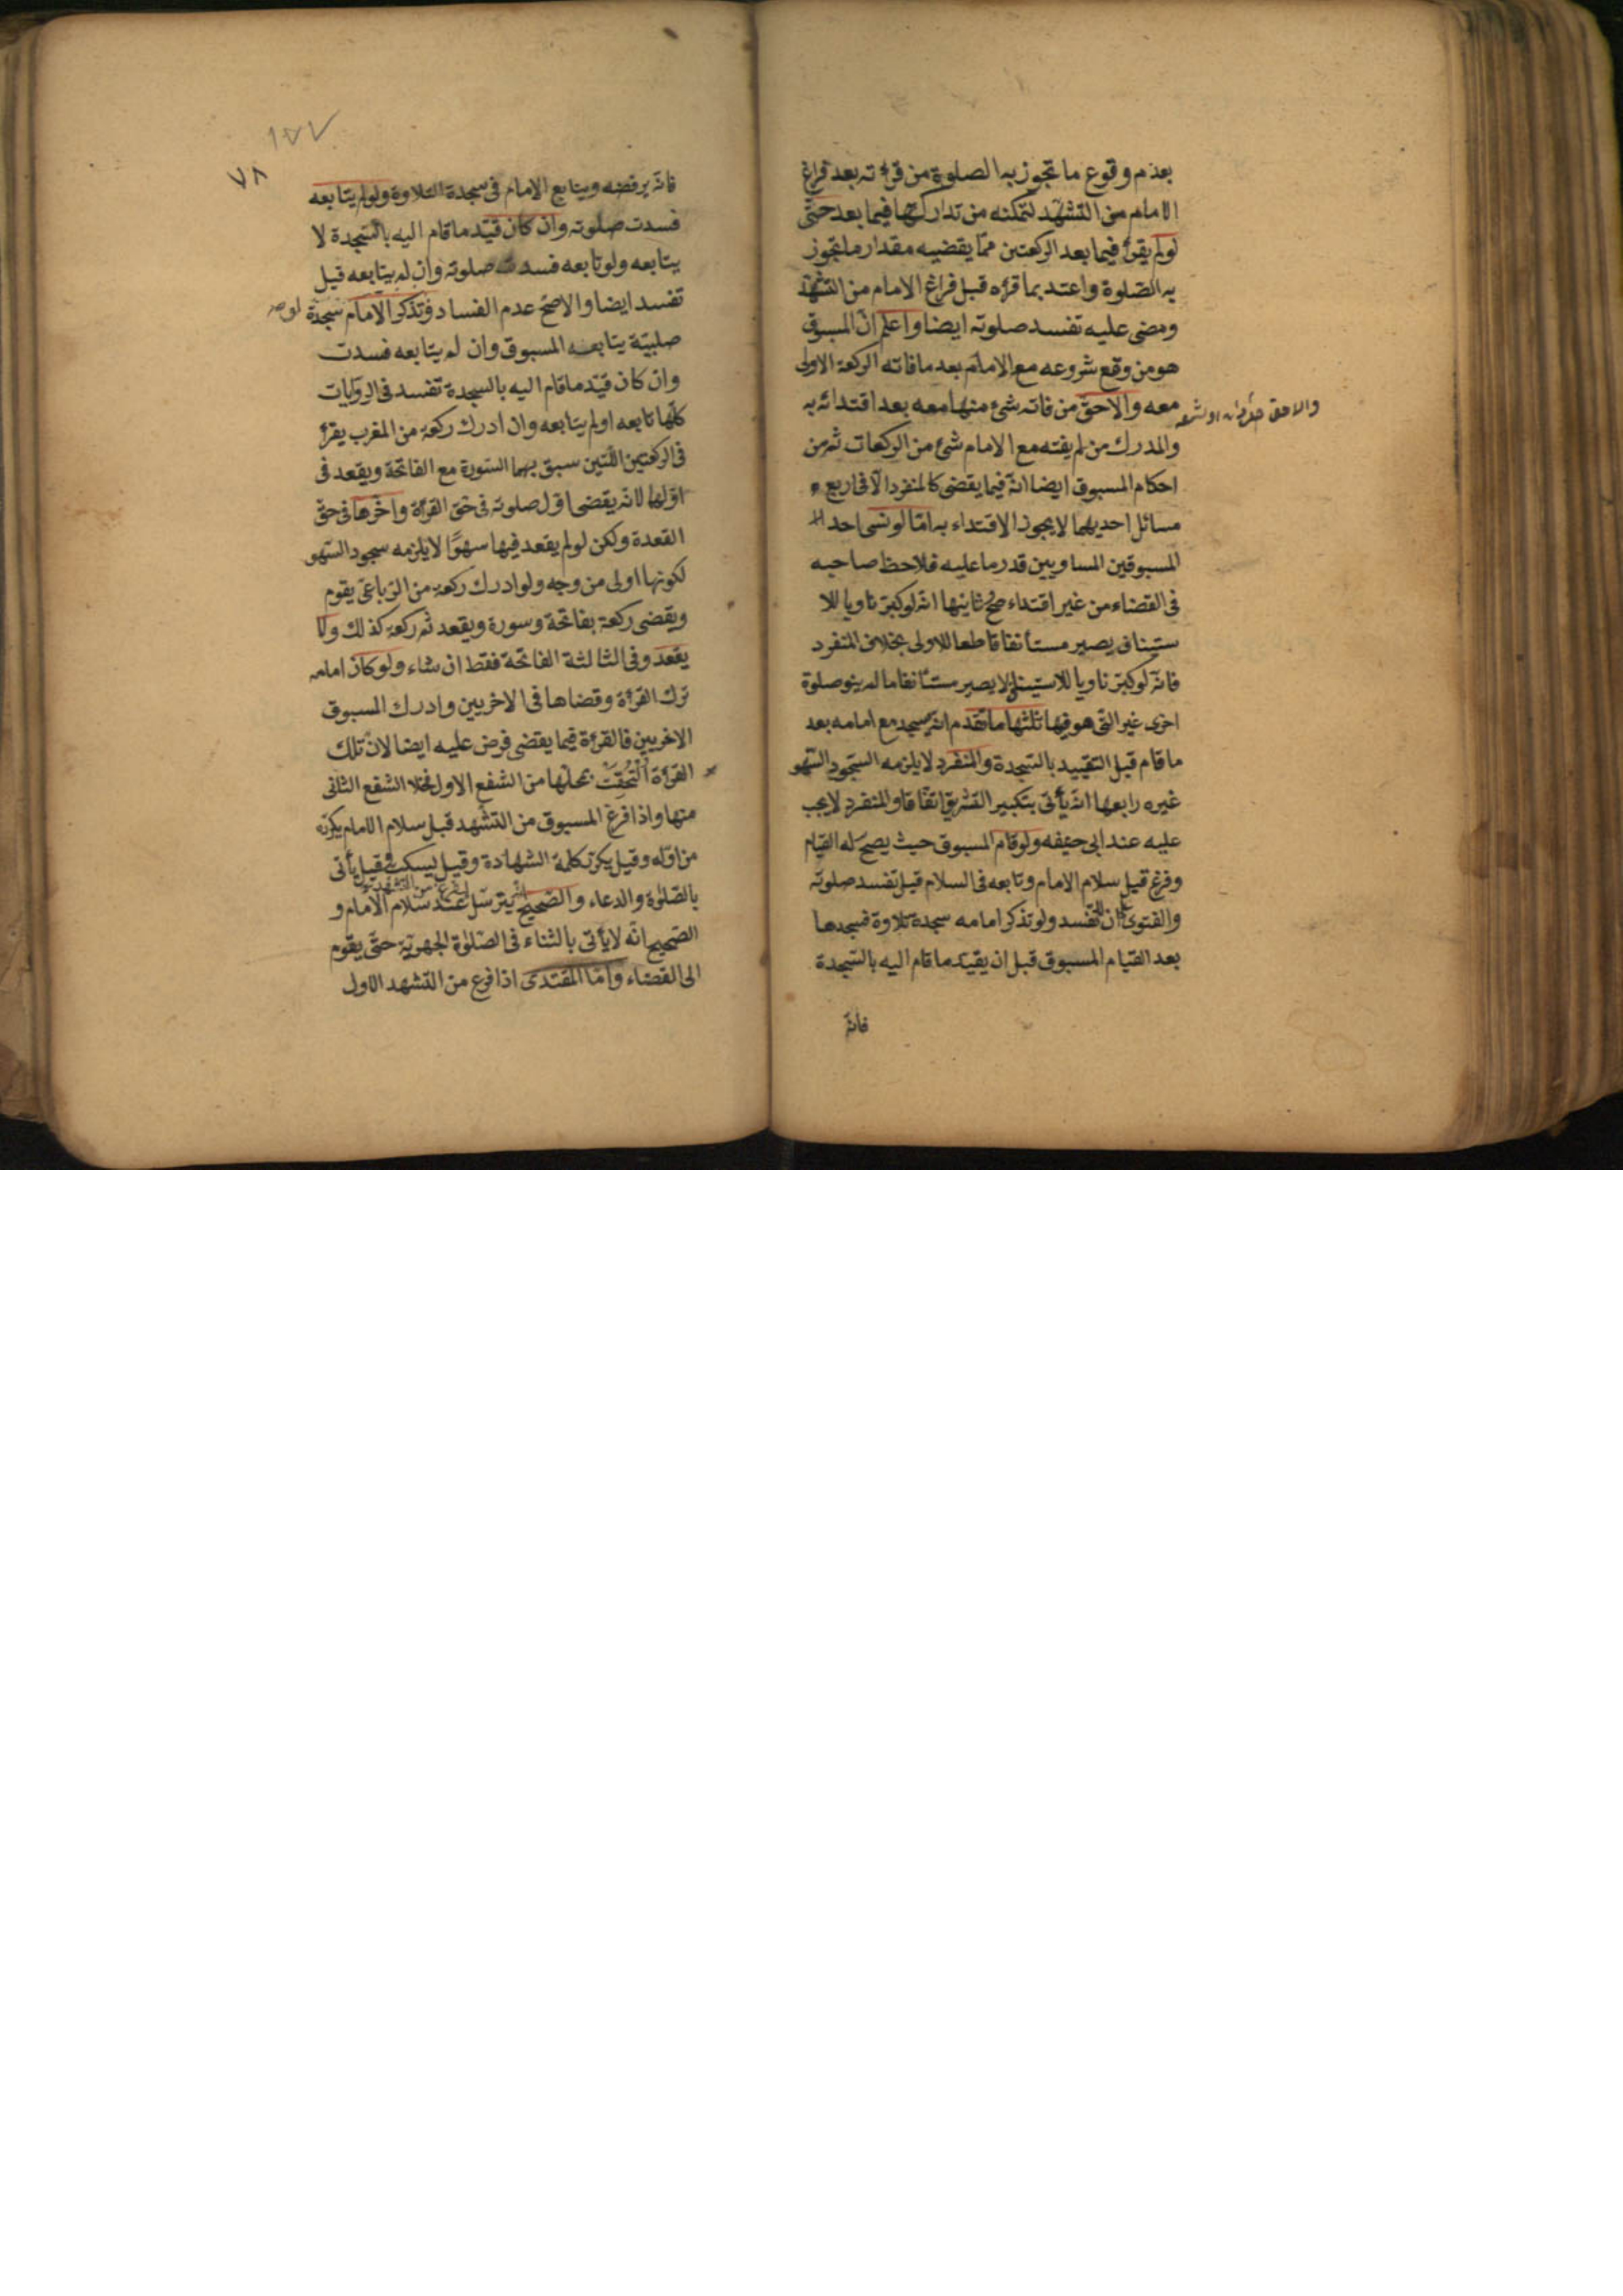 بعدم وقوع ما تجوز به الصلوة من قرءته بعد فراغ
الامام من التشهد لتمكنه من تداركها فيما بعد حتى
لو لم يقرأ فيما بعد الركعتين مما يقضيه مقدار ما تجوز
به الصلوة واعتد بما قرءه قبل فراغ الامام من التشهد
ومضى عليه تفسد صلوته ايضا واعلم ان المسبوق
هو من وقع شروعه مع الامام بعد ما فاته الركعة الاولى
معه والاحق من فاته شئ منها معه بعد اقتدائه به
والمدرك من لم يفته مع الامام شئ من الركعات ثم من
احكام المسبوق ايضا انه فيما يقضى كالمنفرد الا فى اربع
مسائل احديهما لا يجوز الاقتداء به اما لو نسى احد
المسبوقين المساويين قدر ما عليه فلاحظ صاحبه
فى القضاء من غير اقتداء صح ثانيها انه لو كبر ناويا للا
ستيناف يصير مستأنفا قاطعا للاولى بخلاف المنفرد
فانه لو كبر ناويا للاستيناف لا يصير مستأنفا ما لم ينو صلوة
اخرى غير التى هو فيها ثلثها ما تقدم انه يسجد مع امامه بعد
ما قام قبل التقييد بالسجدة والمنفرد لا يلزمه السجود السهو
غيره رابعها انه يأتى بتكبير التشريق اتفاقا والمنفرد لا يجب
عليه عند ابى حنيفه ولو قام المسبوق حيث يصح له القيام
وفرغ قبل سلام الامام وتابعه فى السلام قيل تفسد صلوته
والفتوى على ان لا تفسد ولو تذكر امامه سجدة تلاوة فسجدها
بعد القيام المسبوق قبل ان يقيد ما قام اليه بالسجدة
فانه
٧٨
فانه يرفضه ويتابع الامام فى سجدة التلاوة ولو لم يتابعه
فسدت صلوته وان كان قيد ما قام اليه بالسجدة لا
يتابعه ولو تابعه فسدت صلوته وان لم يتابعه قيل
تفسد ايضا والاصح عدم الفساد وتذكر الامام سجدة
صلبية يتابعه المسبوق وان لم يتابعه فسدت
وان كان قيد ما قام اليه بالسجدة تفسد فى الروايات
كلها تابعه او لم يتابعه وان ادرك ركعة من المغرب يقرأ
فى الركعتين اللتين سبق بهما السورة مع الفاتحة ويقعد فى
اولها لانه يقضى اول صلوته فى حق القرأة واخرها فى حق
القعدة ولكن لو لم يقعد فيها سهوًا لا يلزمه سجود السهو
لكونها اولى من وجه ولو ادرك ركعة من الرباعى يقوم
ويقضى ركعة بفاتحة وسورة ويقعد ثم ركعة كذلك ولا
يقعد وفى الثالثة الفاتحة فقط ان شاء ولو كان امامه
ترك القرأة وقضاها فى الاخريين وادرك المسبوق
الاخريين فالقرءة فيما يقضى فرض عليه ايضا لان تلك
القرءة التحقت بمحلها من الشفع الاول فخلا الشفع الثانى
منها واذا فرغ المسبوق من التشهد قبل سلام الامام يكرره
من اوله وقيل يكرر كلمة الشهادة وقيل يسكت وقيل يأتى
بالصلوة والدعاء والصحيح انه يترسل ليفرغ من التشهد عند سلام الامام و
الصحيح انه لا يأتى بالثناء فى الصلوة الجهرية حتى يقوم
الى القضاء واما المقتدى اذا فرغ من التشهد الاول